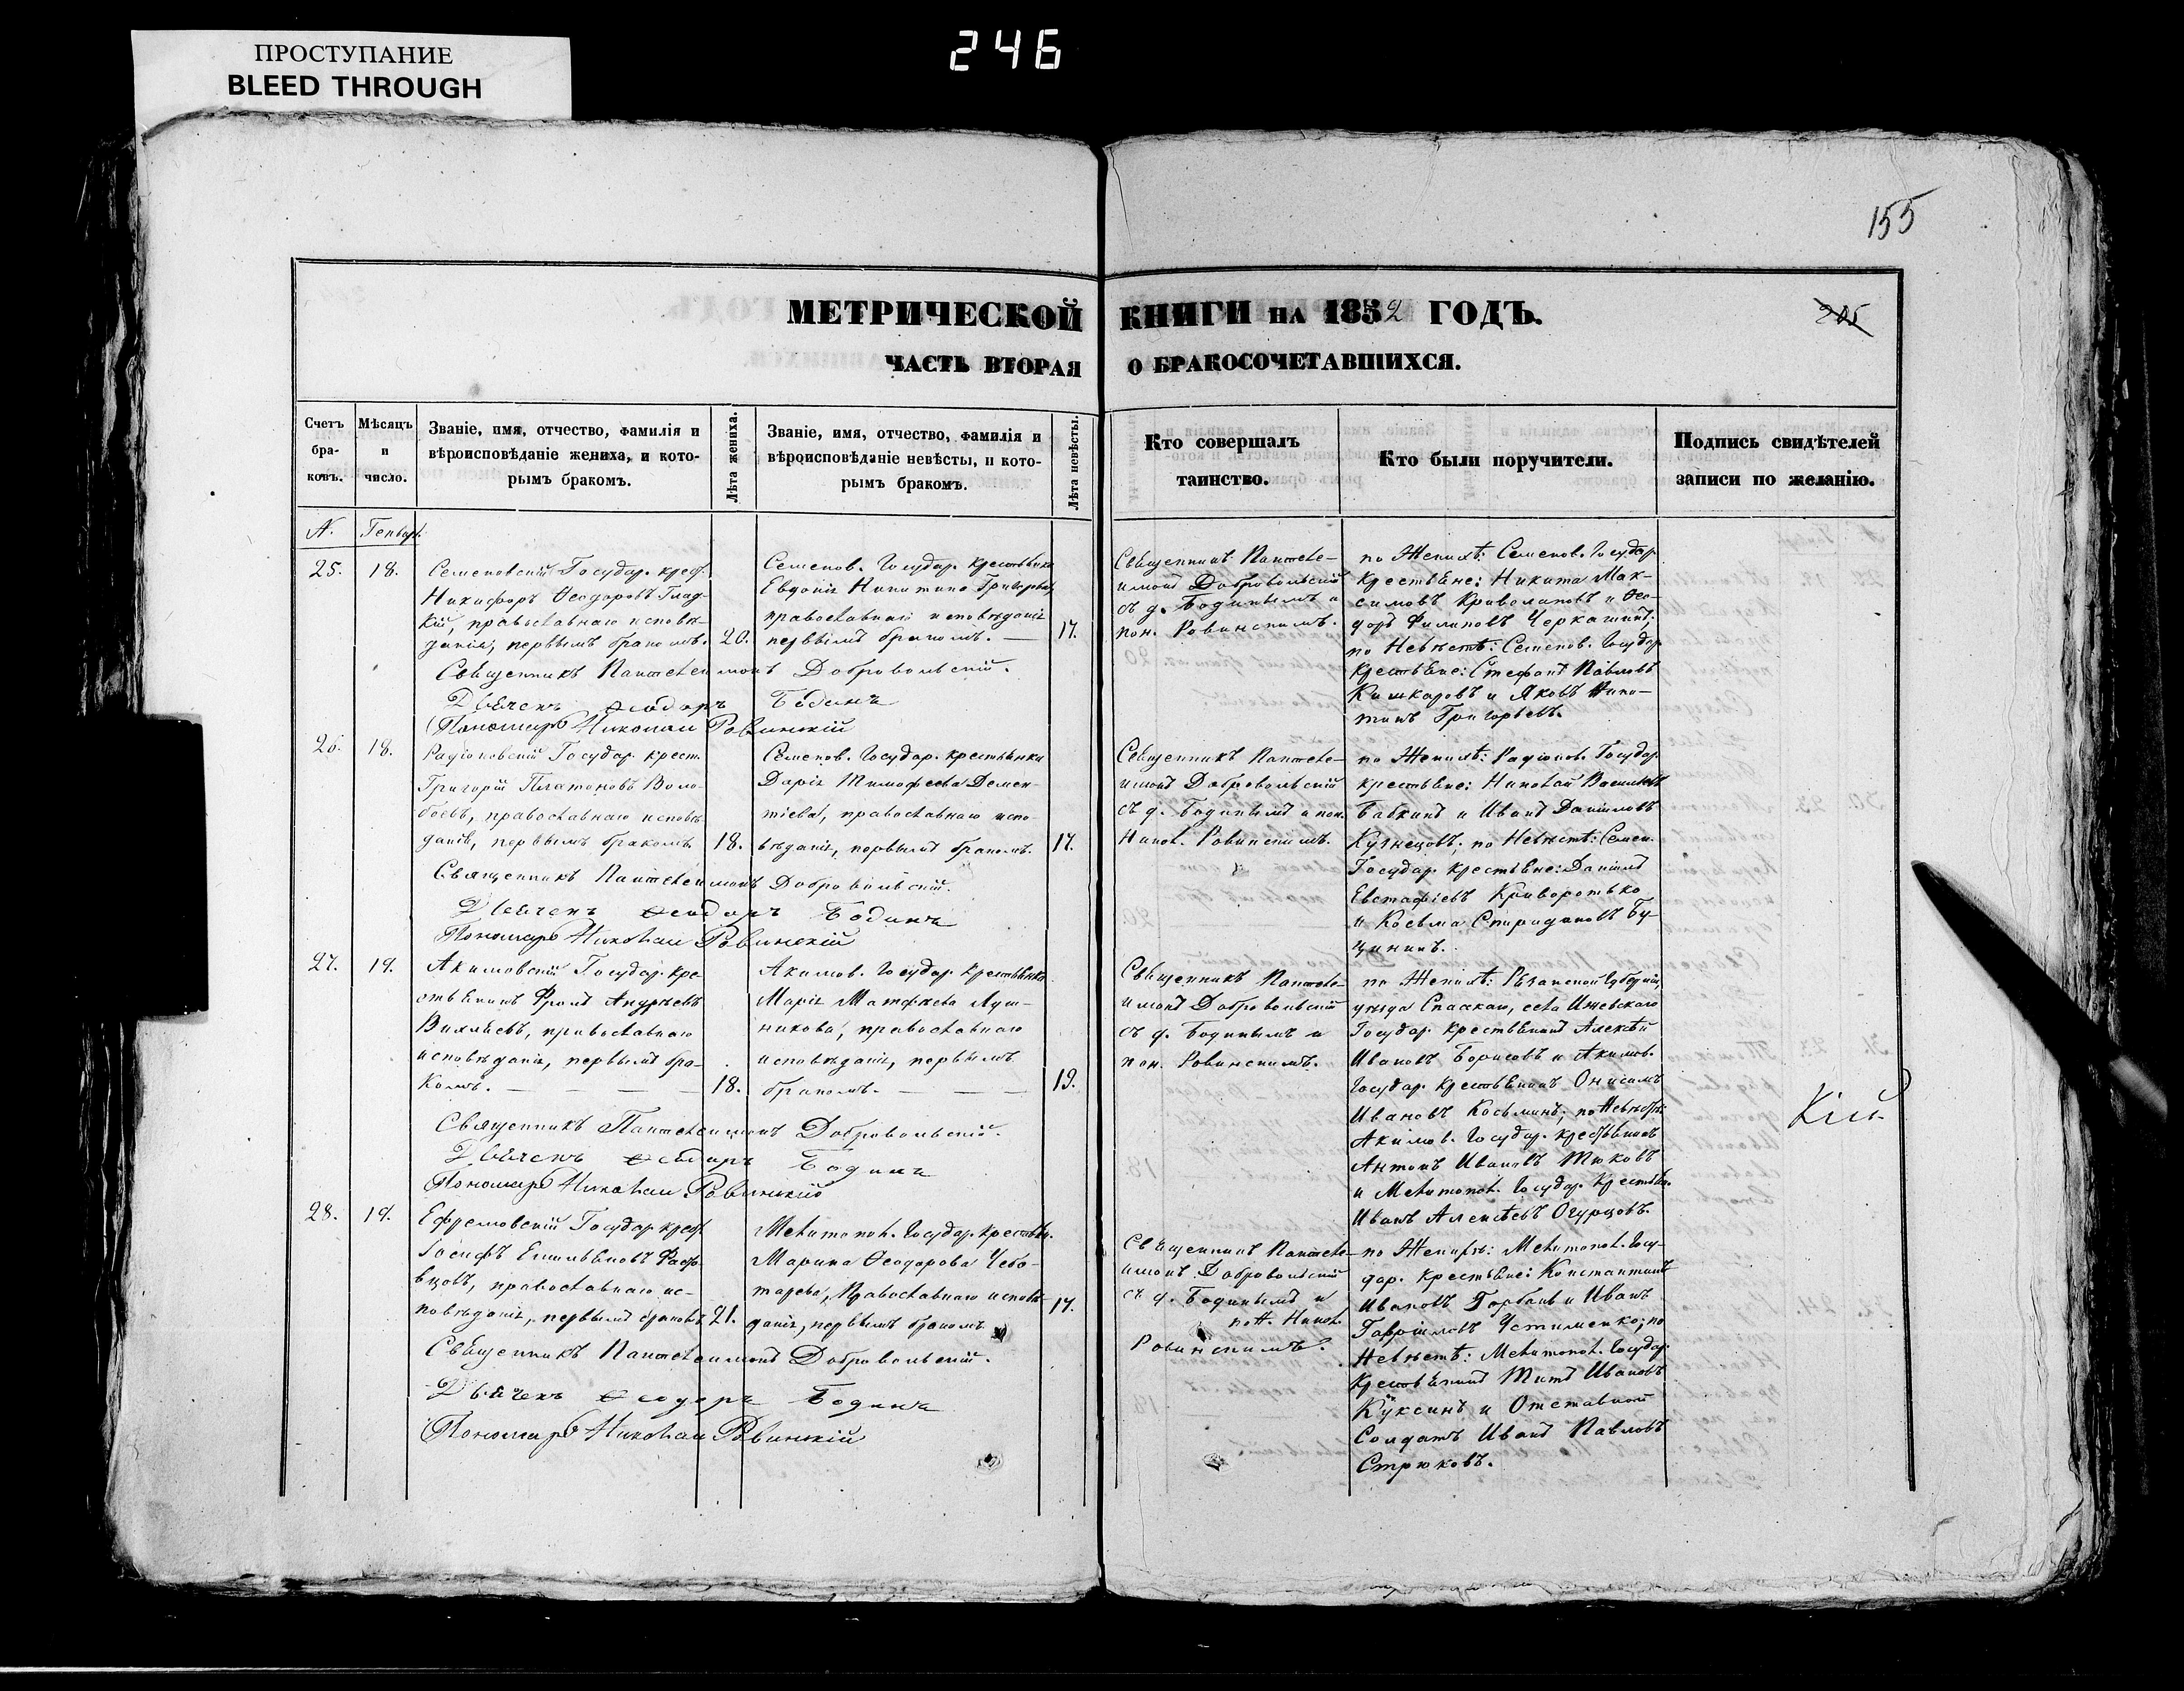 ПРОСТУПАНИЕ
BLEED THROUGH
246
155
МЕТРИЧЕСКОЙ КНИГИ НА 1852 ГОДЪ.
205
ЧАСТЬ ВТОРАЯ О БРАКОСОЧЕТАВШИХСЯ.
Счетъ бра-ковъ.
Мѣсяцъ и число.
Званіе, имя, отчество, фамилія и
вѣроисповѣданіе жениха, и кото-
рымъ бракомъ.
Лѣта жениха.
Званіе, имя, отчество, фамилія и
вѣроисповѣданіе невѣсты, и кото-
рымъ бракомъ.
Лѣта невѣсты.
Кто совершалъ
таинство.
Кто были поручители.
Подпись свидѣтелей
записи по желанію.
N.
25. 18.
Семеновскій Государ. крест.
Никифоръ Ѳеодоровъ Глад-
кій, православнаго исповѣ-
данія, первымъ бракомъ. 20.
Семенов. Государ. крестьянка
Евдокія Никитина
православнаго исповѣданія
первымъ бракомъ. — 17.
Священникъ Пантеле-
имонъ Добровольскій
съ д. Бодинымъ и
пон. Ровинскимъ.
по Женихѣ: Семенов. Государ.
крестьяне: Никита Мак-
симовъ и Ѳео-
доръ Филиповъ Черкашинъ;
по Невѣстѣ: Семенов. Государ.
крестьяне: Стефанъ Павловъ
Кашкаровъ и Яковъ Ники-
тинъ Григорьевъ.
Священникъ Пантелеимонъ Добровольскій.
Дьячекъ Ѳеодоръ Бодинъ
Пономарь Николай Ровинскій
26. 18.
Радіоновскій Государ. крест.
Григорій Платоновъ Воло-
боевъ, православнаго исповѣ-
данія, первымъ бракомъ 18.
Семенов. Государ. крестьянка
Дарія Тимофеева Демен-
тіева, православнаго испо-
вѣданія, первымъ бракомъ. 17.
Священникъ Пантеле-
имонъ Добровольскій
съ д. Бодинымъ и пон.
Никол. Ровинскимъ.
по Женихѣ: Радіонов. Государ.
крестьяне: Николай Васильевъ
Бабкинъ и Иванъ Даниловъ
Кузнецовъ; по Невѣстѣ: Семен.
Государ. крестьяне: Даніилъ
Евстафіевъ Криворотько
и Косьма Спиридоновъ Бу-
Священникъ Пантелеимонъ Добровольскій.
Дьячекъ Ѳеодоръ Бодинъ
Пономарь Николай Ровинскій
27. 19.
Акимовскій Государ. кре-
стьянинъ Фролъ Андреевъ
православнаго
исповѣданія, первымъ бра-
комъ. — — — 18.
Акимов. Государ. крестьянка
Марія Матфѣева
православнаго
исповѣданія, первымъ
бракомъ. — — 19.
Священникъ Пантеле-
имонъ Добровольскій
съ д. Бодинымъ и
пон. Ровинскимъ.
по Женихѣ: Рязанской Губерніи,
уѣзда Спаскаго, села Ижевскаго
Государ. крестьянинъ Алексѣй
Ивановъ Борисовъ и Акимов.
Государ. крестьянинъ Онисимъ
Ивановъ Косьминъ; по Невѣстѣ:
Акимов. Государ. крестьянинъ
Антонъ Ивановъ Тюковъ
и Мелитопол. Государ. крестьян.
Иванъ Алексѣевъ Огурцовъ.
Священникъ Пантелеимонъ Добровольскій.
Дьячекъ Ѳеодоръ Бодинъ
Пономарь Николай Ровинскій
28. 19.
Ефремовскій Государ. крест.
Іосифъ Емельяновъ
православнаго ис-
повѣданія, первымъ бракомъ 21.
Мелитопол. Государ. крестьян.
Марина Ѳеодорова Чебо-
тарева, Православнаго исповѣ-
данія, первымъ бракомъ 17.
Священникъ Пантеле-
имонъ Добровольскій
съ д. Бодинымъ и
пон. Никол.
Ровинскимъ.
по Женихѣ: Мелитопол. Госу-
дар. крестьяне: Константинъ
Ивановъ Горбань и Иванъ
Гавріиловъ Устименко; по
Невѣстѣ: Мелитопол. Государ.
крестьянинъ Титъ Ивановъ
Куксинъ и Отставной
Солдатъ Иванъ Павловъ
Стрюковъ.
Священникъ Пантелеимонъ Добровольскій.
Дьячекъ Ѳеодоръ Бодинъ
Пономарь Николай Ровинскій